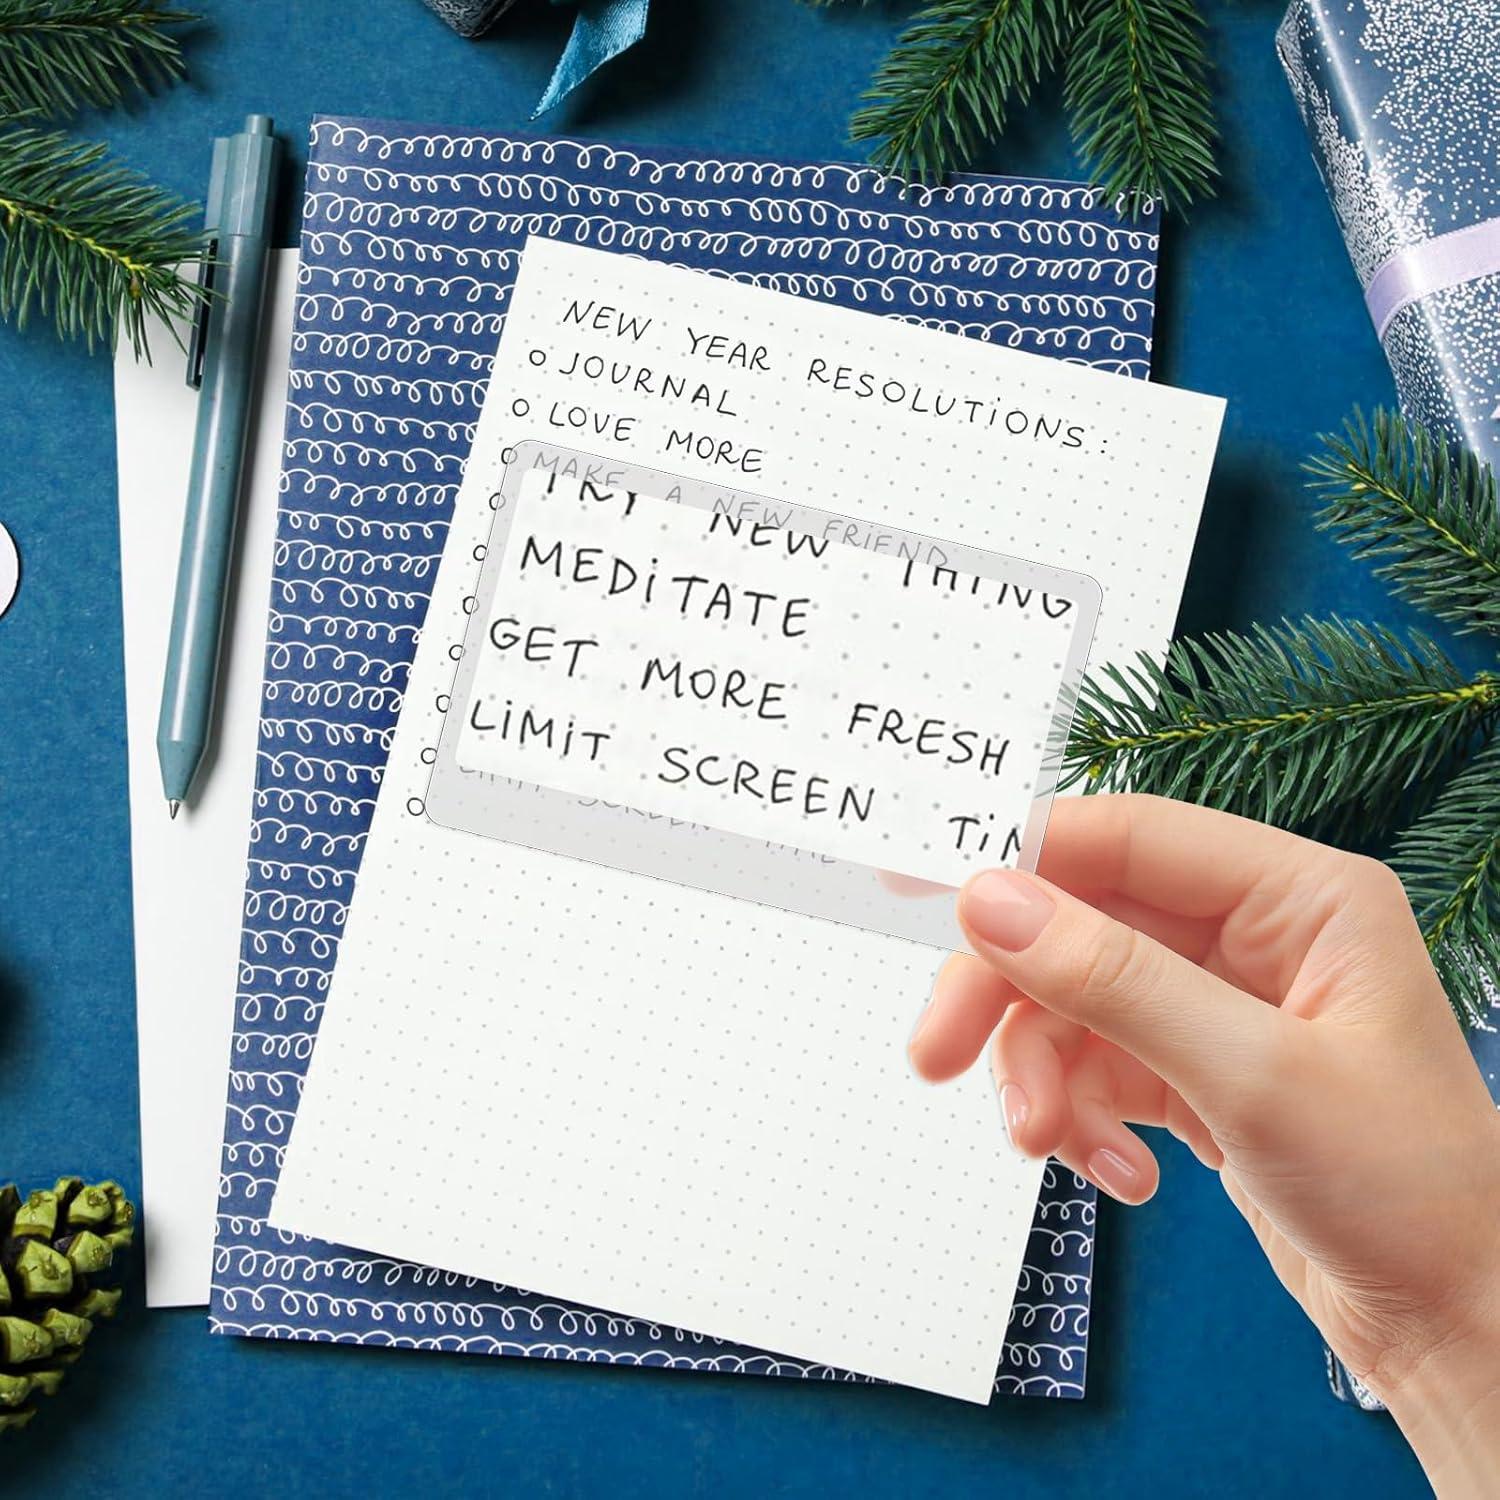 NEW YEAR RESOLUTiONS:
o JOURNAL
o LOVE MORE
o MAKE A NEW FRiEND
TRY NEW THING
MEDiTATE
GET MORE FRESH
LiMiT SCREEN TiM
LiMiT SCREEN TiME